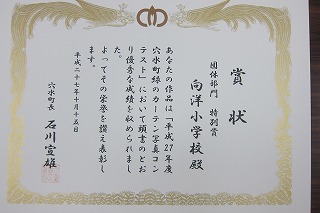 賞状
団体部門　特別賞
向洋小学校殿
あなたの作品は「平成27年度
穴水町緑のカーテン写真コン
テスト」において頭書のとお
り優秀な成績を収められまし
た。
よってその栄誉を讃え表彰し
ます。
平成二十七年十月十五日
穴水町長　石川宣雄